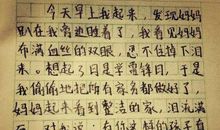 今天早上我起来，发现妈妈
趴在我旁边睡着了，我看见妈妈
布满血丝的双眼，忍不住掉下泪
来。想起3日是学雷锋日，于是
我偷偷地把所有家务都做好了，
妈妈起来看到整洁的家，泪流满